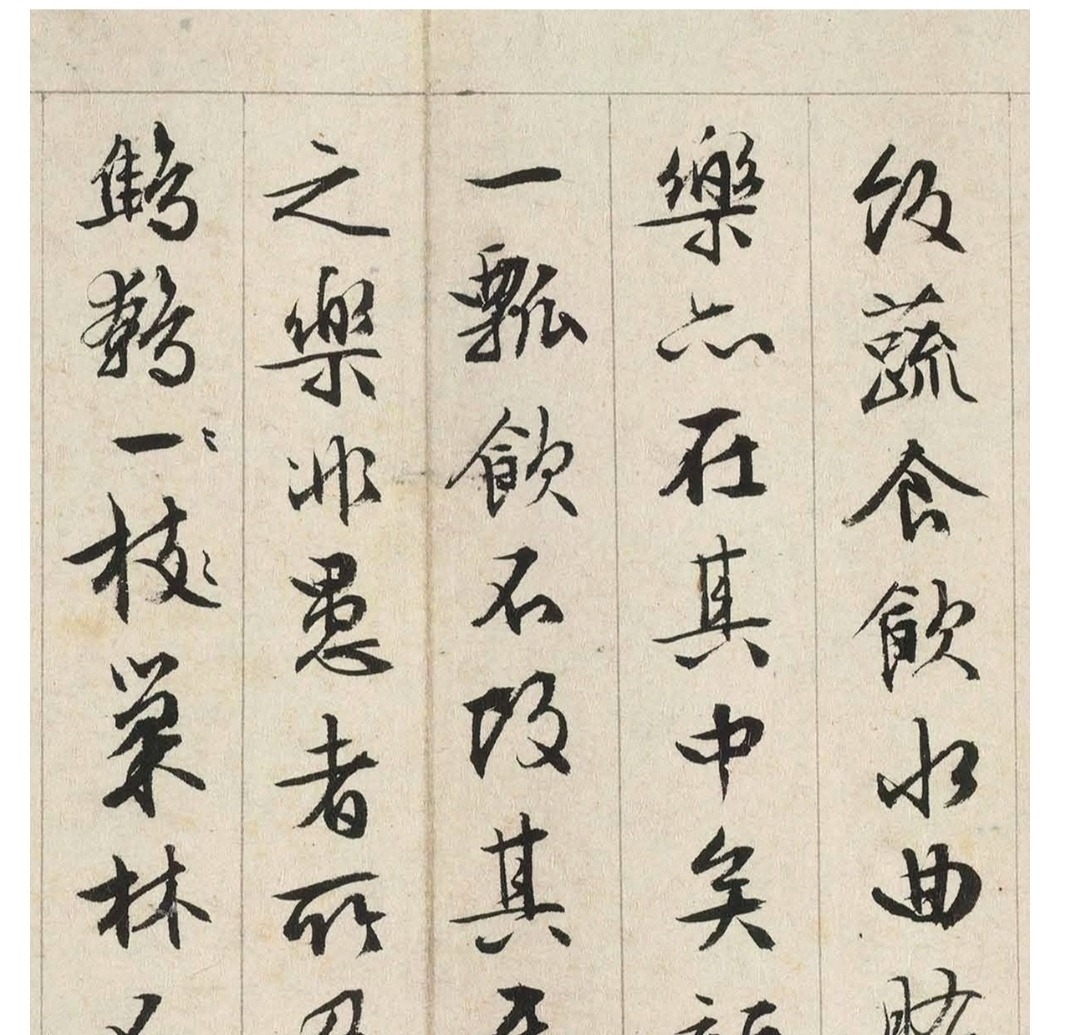 飯蔬食飲水曲肱
樂亦在其中矣
一瓢飲不改其
之樂非愚者所
鷦鷯一枝巢林